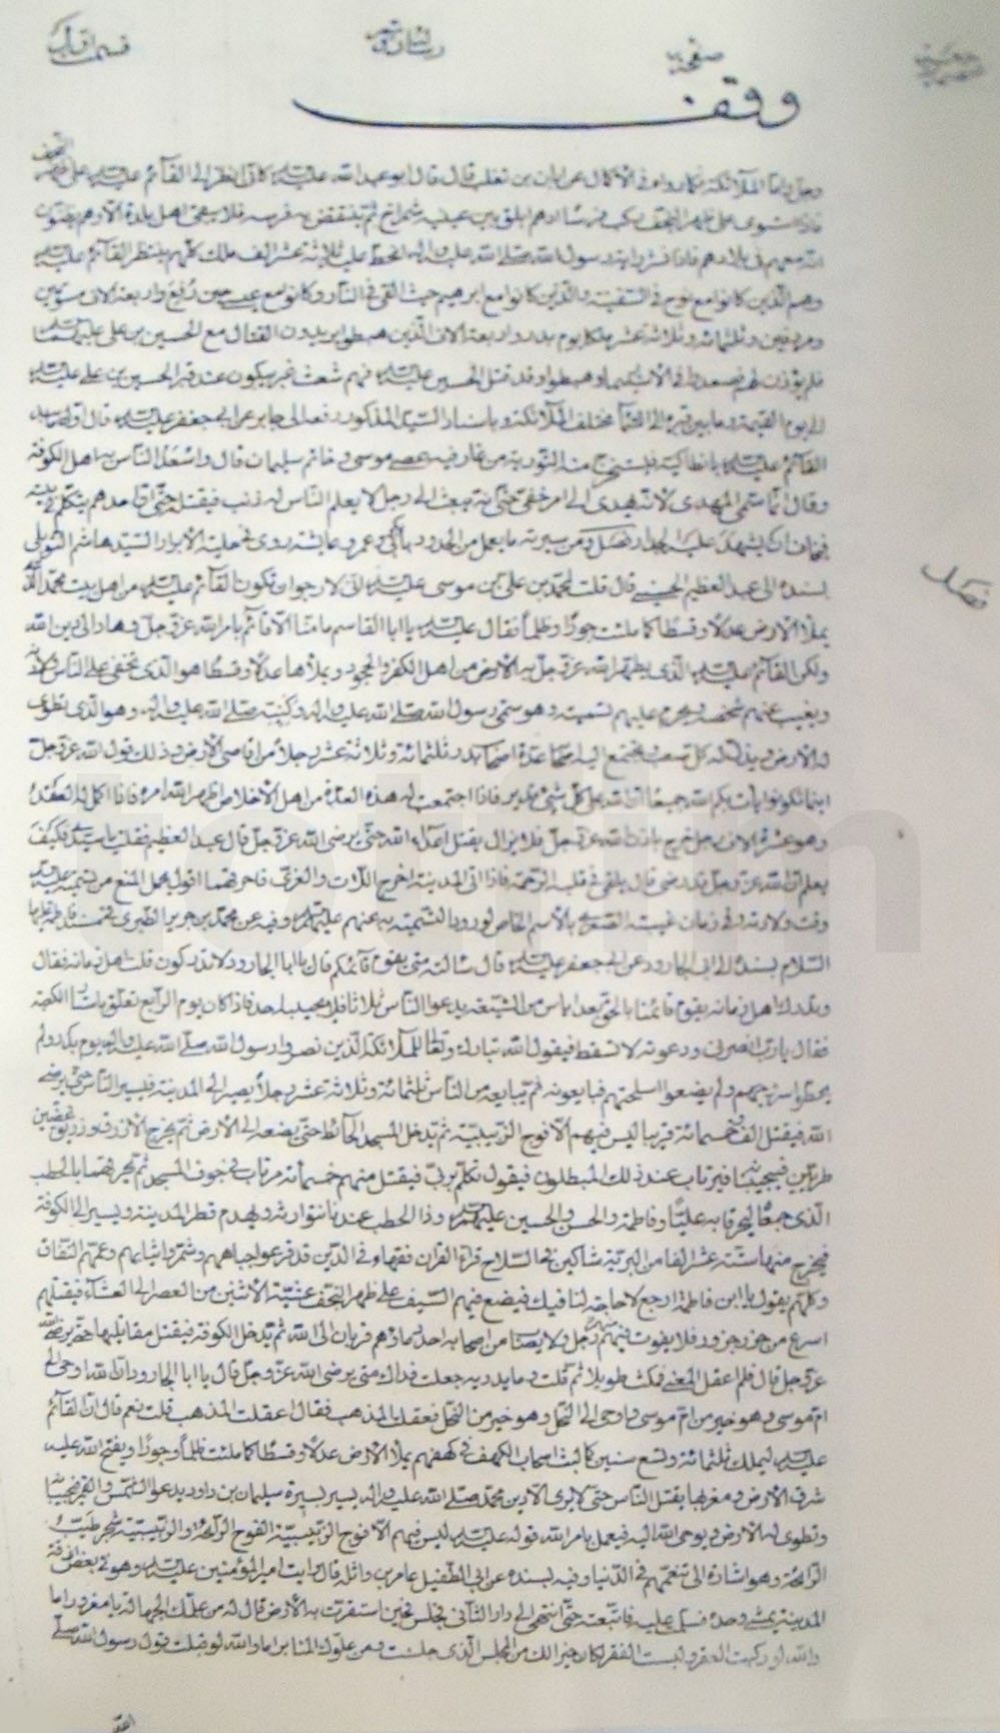 صفحه
وقف
وجل واما الملائكة فما رواه في الاكمال عن ابان بن تغلب قال قال ابو عبد الله عليه السلام كاني انظر الى القائم عليه السلام على
فاذا استوى على ظهر النجف ركب فرسا ادهم ابلق بين عينيه شمراخ ثم ينتفض به فرسه فلا يبقى اهل بلدة الا وهم يظنون
انه معهم في بلادهم فاذا نشر راية رسول الله صلى الله عليه واله انحط عليه ثلاثة عشر الف ملك كلهم ينتظر القائم عليه السلام
وهم الذين كانوا مع نوح في السفينة والذين كانوا مع ابراهيم حيث القي في النار وكانوا مع عيسى حين رفع واربعة الاف مسومين
ومردفين وثلثمائة وثلاثة عشر ملكا يوم بدر واربعة الاف الذين هبطوا يريدون القتال مع الحسين بن علي عليهما
فلم يؤذن لهم فصعدوا في الاستيمار وهبطوا وقد قتل الحسين عليه السلام فهم شعث غبر يبكون عند قبر الحسين بن علي عليه
الى يوم القيمة وما بين قبره الى السماء مختلف الملائكة وباسناد السيد المذكور رفعه الى جابر عن ابي جعفر عليه السلام قال
القائم عليه السلام بانطاكية فيستخرج منه التورية من غار فيه عصى موسى وخاتم سليمان قال واسعد الناس به اهل الكوفة
وقال انما سمي المهدي لانه يهدي الى امر خفي حتى انه يبعث الى رجل لا يعلم الناس له ذنب فيقتله حتى ان احدهم يتكلم في بيته
فيخاف ان يشهد عليه الجدار فصل ومن سيرته ما يعمل من الحدود بابي وعمر وعايشة روى في حلية الابرار السيد هاشم التوبلي
بسنده الى عبد العظيم الحسني قال قلت لمحمد بن علي بن موسى عليه السلام اني لارجو ان تكون القائم عليه السلام من اهل بيت محمد الذي
يملأ الارض عدلا وقسطا كما ملئت جورا وظلما فقال عليه السلام يا ابا القاسم ما منا الا قائم بامر الله عز وجل وهاد الى دين الله
ولكن القائم عليه السلام الذي يطهر الله عز وجل به الارض من اهل الكفر والجحود ويملأها عدلا وقسطا هو الذي تخفى على الناس ولادته
ويغيب عنهم شخصه ويحرم عليهم تسميته وهو سمي رسول الله صلى الله عليه واله وكنيه صلى الله عليه واله وهو الذي تطوى
له الارض ويذل له كل صعب يجتمع اليه اصحابه عدة اصحاب بدر ثلثمائة وثلاثة عشر رجلا من اقاصي الارض وذلك قول الله عز وجل
اينما تكونوا يأت بكم الله جميعا ان الله على كل شئ قدير فاذا اجتمعت له هذه العدة من اهل الاخلاص اظهر الله امره فاذا اكمل له العقد
وهو عشرة الاف رجل خرج باذن الله عز وجل فلا يزال يقتل اعداء الله حتى يرضى الله عز وجل قال عبد العظيم فقلت يا سيدي فكيف
يعلم ان الله عز وجل قد رضى قال يلقى في قلبه الرحمة فاذا اتى المدينة اخرج اللات والعزى فاحرقهما اقول يحمل المنع من تسميته عليه
وقت ولادته وفي زمان غيبته الصغرى بالاسم الخاص لورود التسمية به عنهم عليهم السلام وفيه عن محمد بن جرير الطبري في مسند فاطمة عليها
السلام بسنده الى ابي الجارود عن ابي جعفر عليه السلام قال سألته متى يقوم قائمكم قال يا ابا الجارود لا تدركون قلت اهل زمانه فقال
ولن تدرك اهل زمانه يقوم قائمنا بالحق بعد اياس من الشيعة يدعو الناس ثلاثا فلا يجيبه احد فاذا كان يوم الرابع تعلق باستار الكعبة
فقال يا رب انصرني ودعوته لا تسقط فيقول الله تبارك وتعالى للملائكة الذين نصروا رسول الله صلى الله عليه واله يوم بدر ولم
يحطوا سروجهم ولم يضعوا اسلحتهم فيبايعونه ثم يبايعه من الناس ثلثمائة وثلاثة عشر رجلا يصير الى المدينة فيسير الناس حتى يرضى
الله فيقتل الف وخمسمائة قريبا ليس فيهم الا فوخ الزبيبية ثم يدخل المسجد فينقض الحائط حتى يضعه الى الارض ثم يخرج الازرق وزريق غضين
طريين فيجيبانه فيرتاب عند ذلك المبطلون فيقول تكلم فيقتل منهم خمسمائة مرتاب في جوف المسجد ثم يحرقهما بالحطب
الذي جمعاه ليحرقا به عليا وفاطمة والحسن والحسين عليهم السلام وذا الحطب عندنا نتوارثه ويهدم قصر المدينة ويسير الى الكوفة
فيخرج منها ستة عشر الفا من البترية شاكين في السلاح قراء القران فقهاء في الدين قد قرعوا جباههم وشمروا ثيابهم وعمهم النفاق
وكلهم يقول يا ابن فاطمة ارجع لا حاجة لنا فيك فيضع فيهم السيف على ظهر النجف عشية الاثنين من العصر الى العشاء فيقتلهم
اسرع من جزر جزور فلا يفوت منهم رجل ولا يصاب من اصحابه احد دماؤهم قربان الى الله ثم يدخل الكوفة فيقتل مقاتليها حتى يرضى الله
عز وجل قال فلم اعقل المعنى فمكثت طويلا ثم قلت وما يدريه جعلت فداك متى يرضى الله عز وجل قال يا ابا الجارود ان الله اوحى الى
ام موسى وهو خير من ام موسى واوحى الى النحل وهو خير من النحل فعقلت المذهب فقال اعقلت المذهب قلت نعم قال ان القائم
عليه السلام ليملك ثلثمائة وتسع سنين كما لبث اصحاب الكهف في كهفهم يملأ الارض عدلا وقسطا كما ملئت ظلما وجورا ويفتح الله عليه
شرق الارض ومغربها يقتل الناس حتى لا يرى الا دين محمد صلى الله عليه واله يسير بسيرة سليمان بن داود يدعو الشمس والقمر فيجيبانه
وتطوى له الارض ويوحى الله اليه فيعمل بامر الله قوله عليه السلام ليس فيهم الا فوخ الزبيبية الفوخ الرائحة والزبيبية شجر طيب
الرائحة وهو اشارة الى تنعمهم في الدنيا وفيه بسنده عن ابي الطفيل عامر بن واثلة قال رايت امير المؤمنين عليه السلام وهو في بعض ازقة
المدينة يمشي وحده فسلم عليه فاتبعته حتى انتهى الى دار الثاني فجلس فحين استقرت به الارض قال له من علمك الجهالة يا مغرور اما
والله لو ركبت القفر ولبست الفقر لكان خيرا لك من المجلس الذي جلست ومن علوك المنابر اما والله لو قبلت قول رسول الله صلى
الله
فصل